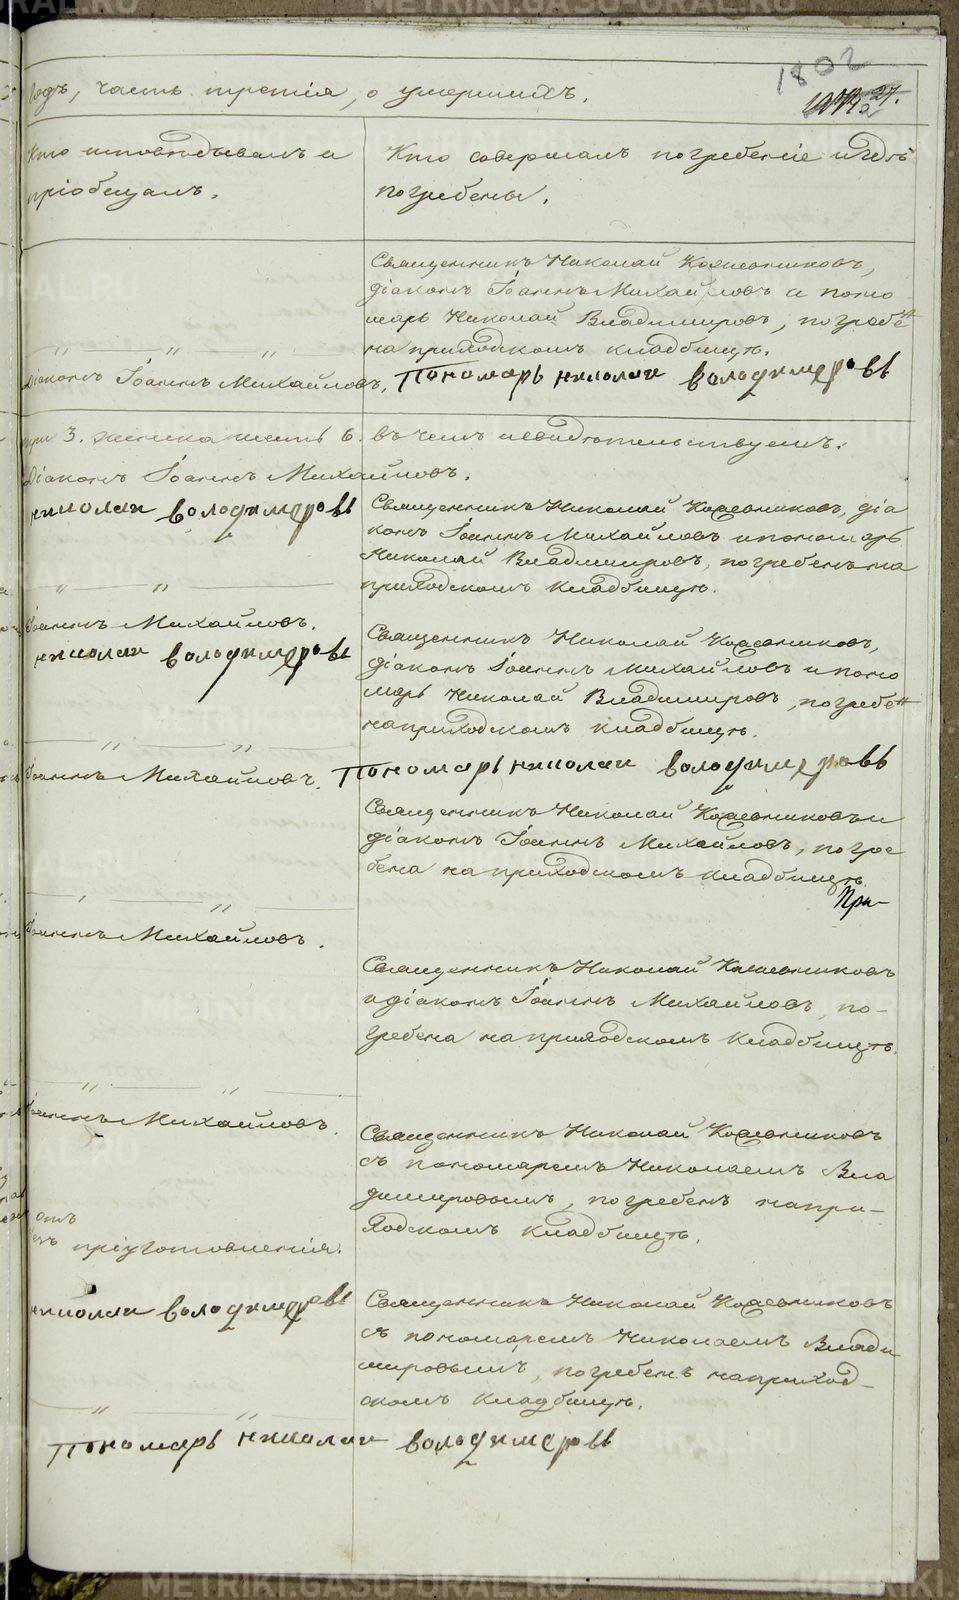 1802
годъ, часть третія, о умершихъ.
27.
Кто исповѣдывалъ и
пріобщалъ.
Кто совершалъ погребеніе и гдѣ
погребены.
Священникъ Николай Кожевниковъ,
діаконъ Іоаннъ Михайловъ и поно
марь Николай Владимировъ, погребен
на приходскомъ кладбищѣ.
Діаконъ Іоаннъ Михайловъ, Пономарь николаи володимеровъ
при 3. женска шесть 6. въ чемъ и свидѣтельствуемъ.
Діаконъ Іоаннъ Михайловъ.
николаи володимеровъ
Священникъ Николай Кожевниковъ, діа
конъ Іоаннъ Михайловъ и пономарь
Николай Владимировъ, погребенъ на
приходскомъ кладбищѣ.
Іоаннъ Михайловъ.
николаи володимеровъ
Священникъ Николай Кожевниковъ,
діаконъ Іоаннъ Михайловъ и поно
марь Николай Владимировъ, погребен
на приходскомъ кладбищѣ.
Іоаннъ Михайловъ. Пономарь николаи володимеровъ
Священникъ Николай Кожевниковъ и
діаконъ Іоаннъ Михайловъ, погре
бена на приходскомъ кладбищѣ.
При-
Іоаннъ Михайловъ.
Священникъ Николай Кожевниковъ
и діаконъ Іоаннъ Михайловъ, по-
гребена на приходскомъ кладбищѣ.
Іоаннъ Михайловъ.
Священникъ Николай Кожевниковъ
съ пономаремъ Николаемъ Вла
димировымъ, погребенъ на при-
ходскомъ кладбищѣ.
отъ
пріуготовленія.
николаи володимеровъ
Священникъ Николай Кожевниковъ
съ пономаремъ Николаемъ Влади
мировымъ, погребенъ на приход-
скомъ кладбищѣ.
Пономарь николаи володимеровъ
METRIKI.GASU-URAL.RU